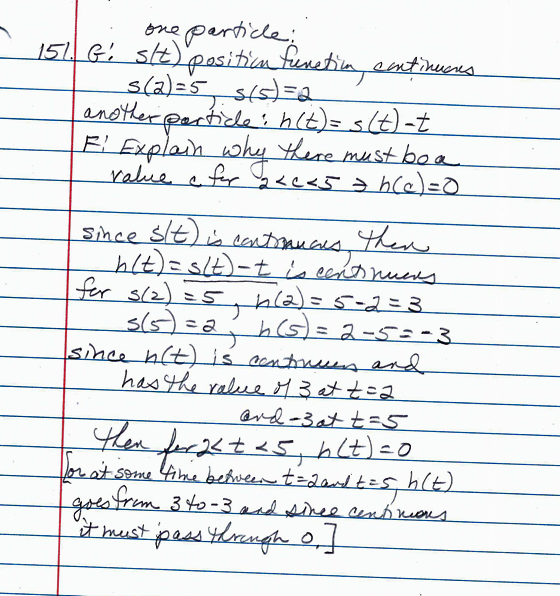 one particle:
151. G: s(t) position function, continuous
s(2)=5, s(5)=2
another particle: h(t)= s(t)-t
F: Explain why there must be a
value c for 2<c<5 ∋ h(c)=0
since s(t) is continuous, then
h(t)=s(t)-t is continuous
for s(2)=5, h(2)= 5-2=3
s(5)=2, h(5)= 2-5=-3
since h(t) is continuous and
has the value of 3 at t=2
and -3 at t=5
then for 2<t<5, h(t)=0
[or at some time between t=2 and t=5, h(t)
goes from 3 to -3 and since continuous
it must pass through 0.]